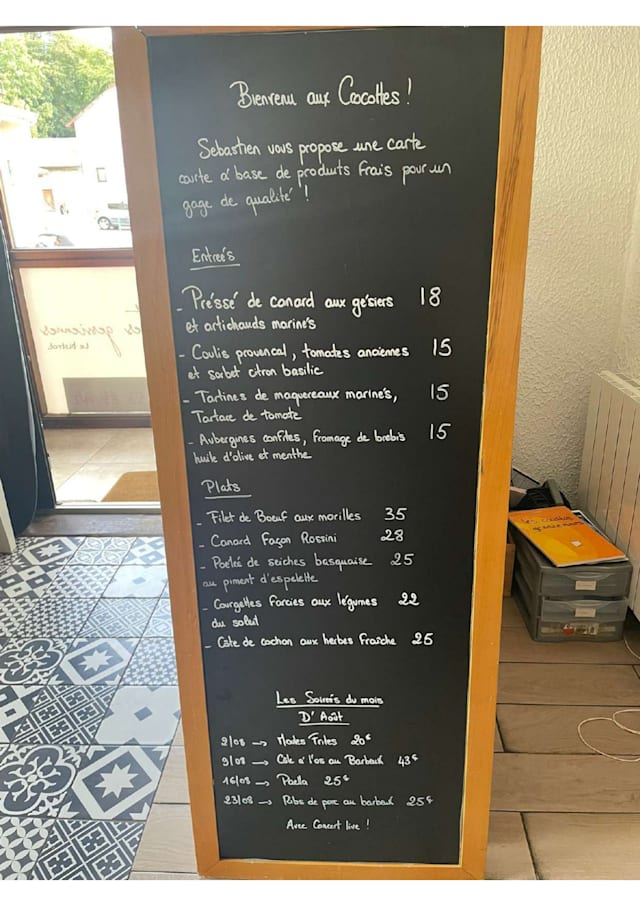 Bienvenu aux Crocottes !
Sebastien vous propose une carte
courte a' base de produits frais pour un
gage de qualité !
Entreés
- Préssé de canard aux gésiers 18
et artichauds marinés
- Coulis provencal, tomates anciennes 15
et sorbet citron basilic
- Tartines de maquereaux marinés, 15
Tartare de tomate
- Aubergines confites, fromage de brebis 15
huile d'olive et menthe
Plats
- Filet de Boeuf aux morilles 35
- Canard Façon Rossini 28
- Poeleé de seiches basquaise 25
au piment d'espelette
- Courgettes Farcies aux légumes 22
du soleil
- Côte de cochon aux herbes fraîche 25
Les Soireés du mois
D'Août
2/08 → Moules Frites 20€
9/08 → Côte a' l'os au Barbeuk 43€
16/08 → Paella 25€
23/08 → Ribs de porc au barbeuk 25€
Avec Concert live !
gessiennes
Le bistrot